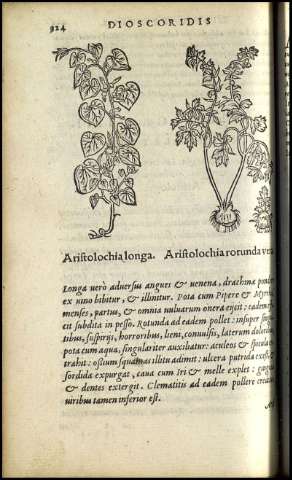 924 DIOSCORIDIS
Aristolochia longa. Aristolochia rotunda vera
Longa verò aduersus angues & uenena, drachmæ pondere
ex uino bibitur, & illinitur. Pota cum Pipere & Myrrha
menses, partus, & omnia uuluarum onera eijcit: eadem
cit subdita in pesso. Rotunda ad eadem pollet: insuper
tibus, suspirijs, horroribus, lieni, conuulsis, laterum
pota cum aqua, singulariter auxiliatur: aculeos & spicula
trahit: ossium squamas illitu adimit: ulcera putrida
sordida expurgat, caua cum Iri & melle explet:
& dentes extergit. Clematitis ad eadem pollere
uiribus tamen inferior est.